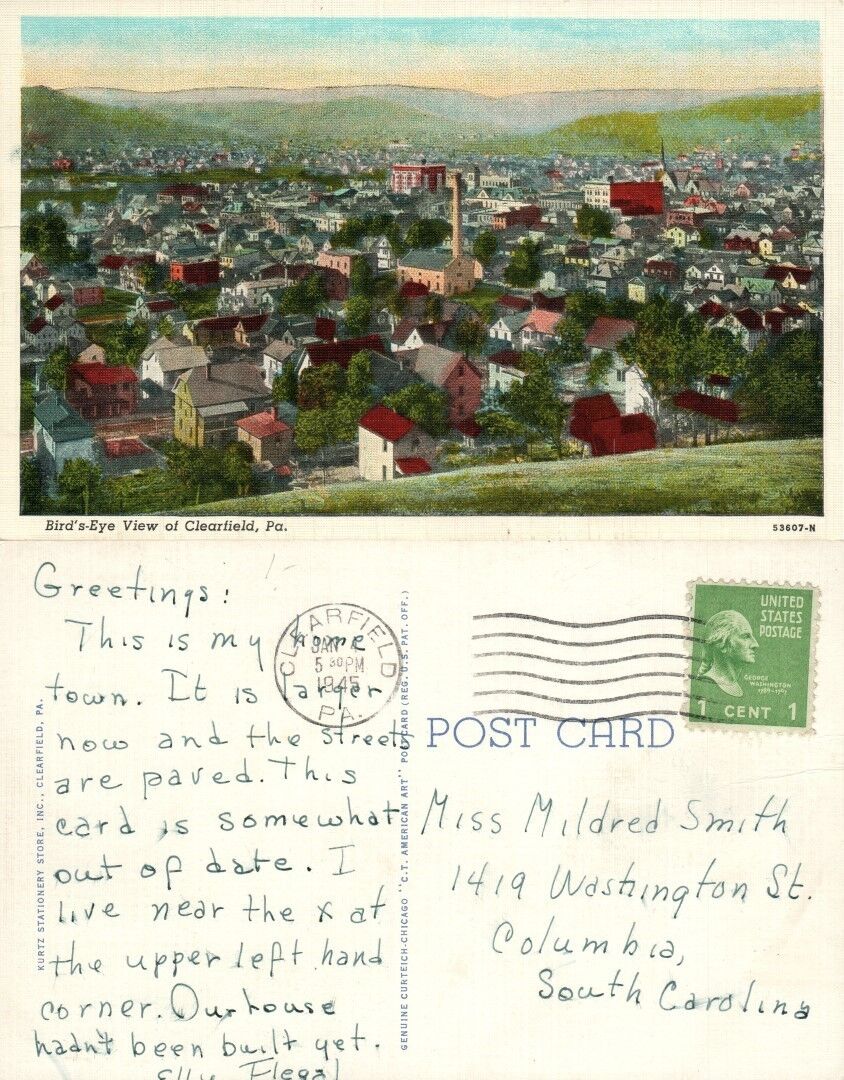 Bird's-Eye View of Clearfield, Pa.
53607-N
Greetings:
This is my home
town. It is larger
now and the streets
are paved. This
card is somewhat
out of date. I
live near the x at
the upper left hand
corner. Our house
hadn't been built yet.
Flegal
KURTZ STATIONERY STORE, INC., CLEARFIELD, PA.
GENUINE CURTEICH-CHICAGO "C.T. AMERICAN ART" POST CARD (REG. U.S. PAT. OFF.)
CLEARFIELD
JAN
5 30 PM
1945
PA.
UNITED
STATES
POSTAGE
GEORGE
WASHINGTON
1789-1797
1 CENT 1
POST CARD
Miss Mildred Smith
1419 Washington St.
Columbia,
South Carolina